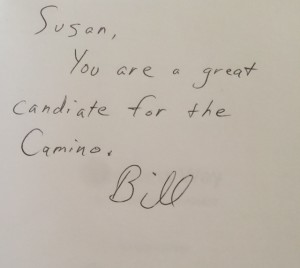 Susan,
You are a great
candiate for the
Camino.
Bill